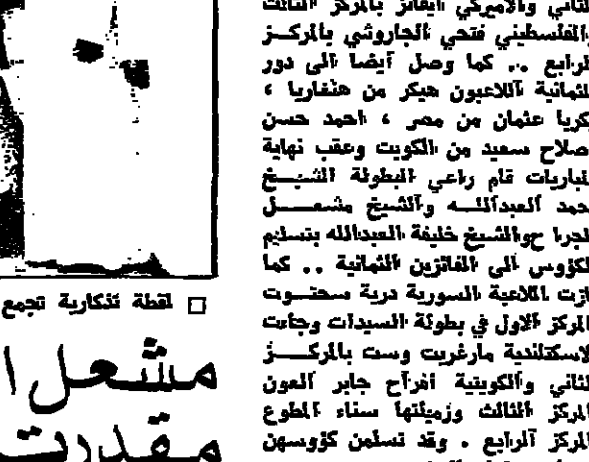 الثاني والاميركي ايفانز بالمركز الثالث
والفلسطيني فتحي الجاروشي بالمركــز
الرابع .. كما وصل أيضا الى دور
الثمانية اللاعبون هيكر من هنغاريا ،
زكريا عثمان من مصر ، احمد حسن
صلاح سعيد من الكويت وعقب نهاية
المباريات قام راعي البطولة الشيــخ
حمد العبداللــه والشيخ مشعــــل
الجراح والشيخ خليفة العبدالله بتسليم
الكؤوس الى الفائزين الثمانية .. كما
فازت اللاعبة السورية درية سحتــوت
المركز الاول في بطولة السيدات وجاءت
الاسكتلندية مارغريت وست بالمركــــز
الثاني والكويتية افراح جابر العون
المركز الثالث وزميلتها سناء المطوع
المركز الرابع . وقد تسلمن كؤوسهن
□ لقطة تذكارية تجمع
مشعل ا
مقدرت